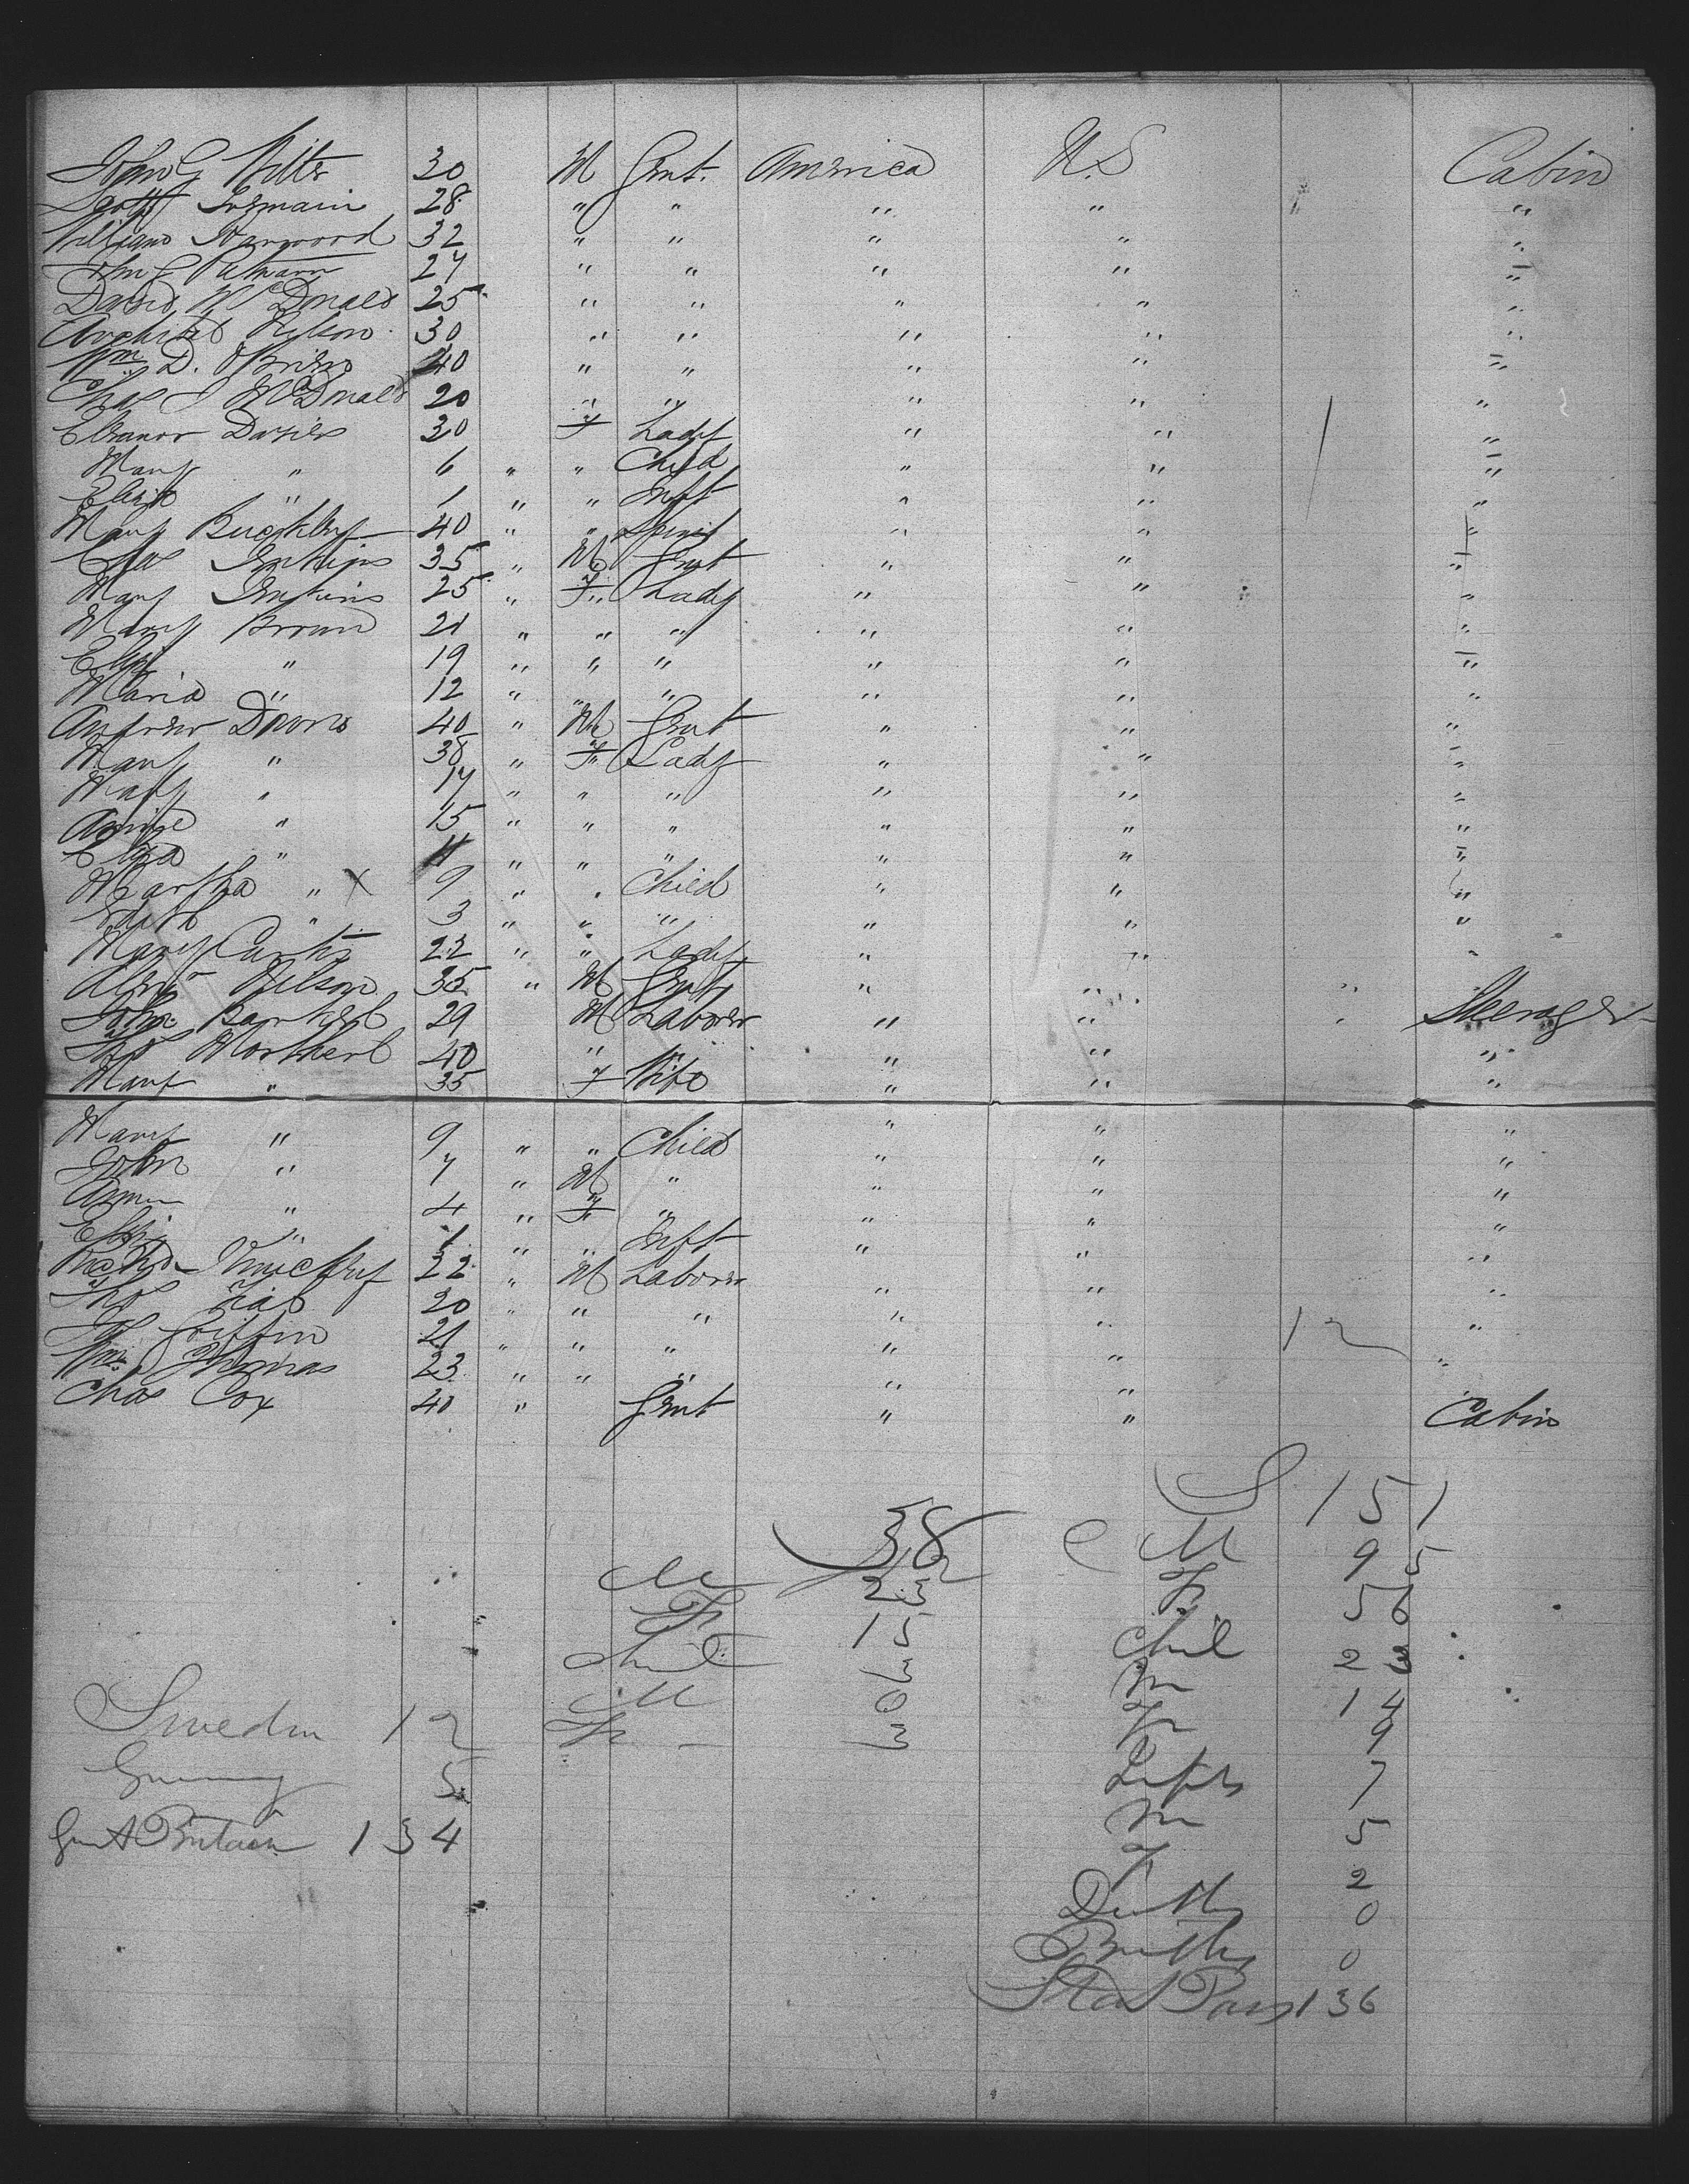 John G 30 M Gent. America U.S Cabin
Scott Germain 28 " " " " "
William Harwood 32 " " " " "
John G Putnam 27 " " " " "
David McDonald 25 " " " " "
Archibald Nelson 30 " " " " "
Wm D. OBrien 40 " " " " "
Chas J McDonald 20 " " " " "
Eleanor Davies 30 F Lady " " "
Mary " 6 " " Child " " "
" 1 " " Inft " " "
Mary 40 " " Spinst " " "
Chas Jenkins 35 " M Gent " " "
Mary Jenkins 25 " F Lady " " "
Mary Brown 21 " " " " " "
" 19 " " " " " "
Maria " 12 " " " " " "
Andrew Downs 40 " M Gent " " "
Mary " 38 " F Lady " " "
Mary " 17 " " " " " "
Annie " 15 " " " " " "
Eliza " 11 " " " " " "
Martha " X 9 " " Child " " "
Edith " 3 " " " " " "
Mary Curtis 22 " " Lady " " "
Alex Nelson 35 " M Gent " " " "
John 29 M Laborer " " " Steerage
Thos 40 " " " " "
Mary " 35 F Wife " " "
Mary " 9 " " Child " " "
John " 7 " M " " " "
Annie " 4 " F " " " "
Effie " 1 " " Inft " " "
22 " M Laborer " " "
Thos 20 " " " " " "
Griffin 21 " " " " " 12 "
Wm Thomas 23 " " " " " "
Chas Cox 40 " Gent " " Cabin
S 151
38
M 95
M 23
F 56
F 15
Chil 23
Chil 3
M 14
M 0
F 9
F - 3
Sweden 12
Infts 7
Germany 5
M 5
Great Britain 134
F 2
Deaths 0
Births 0
Stat Pass 136